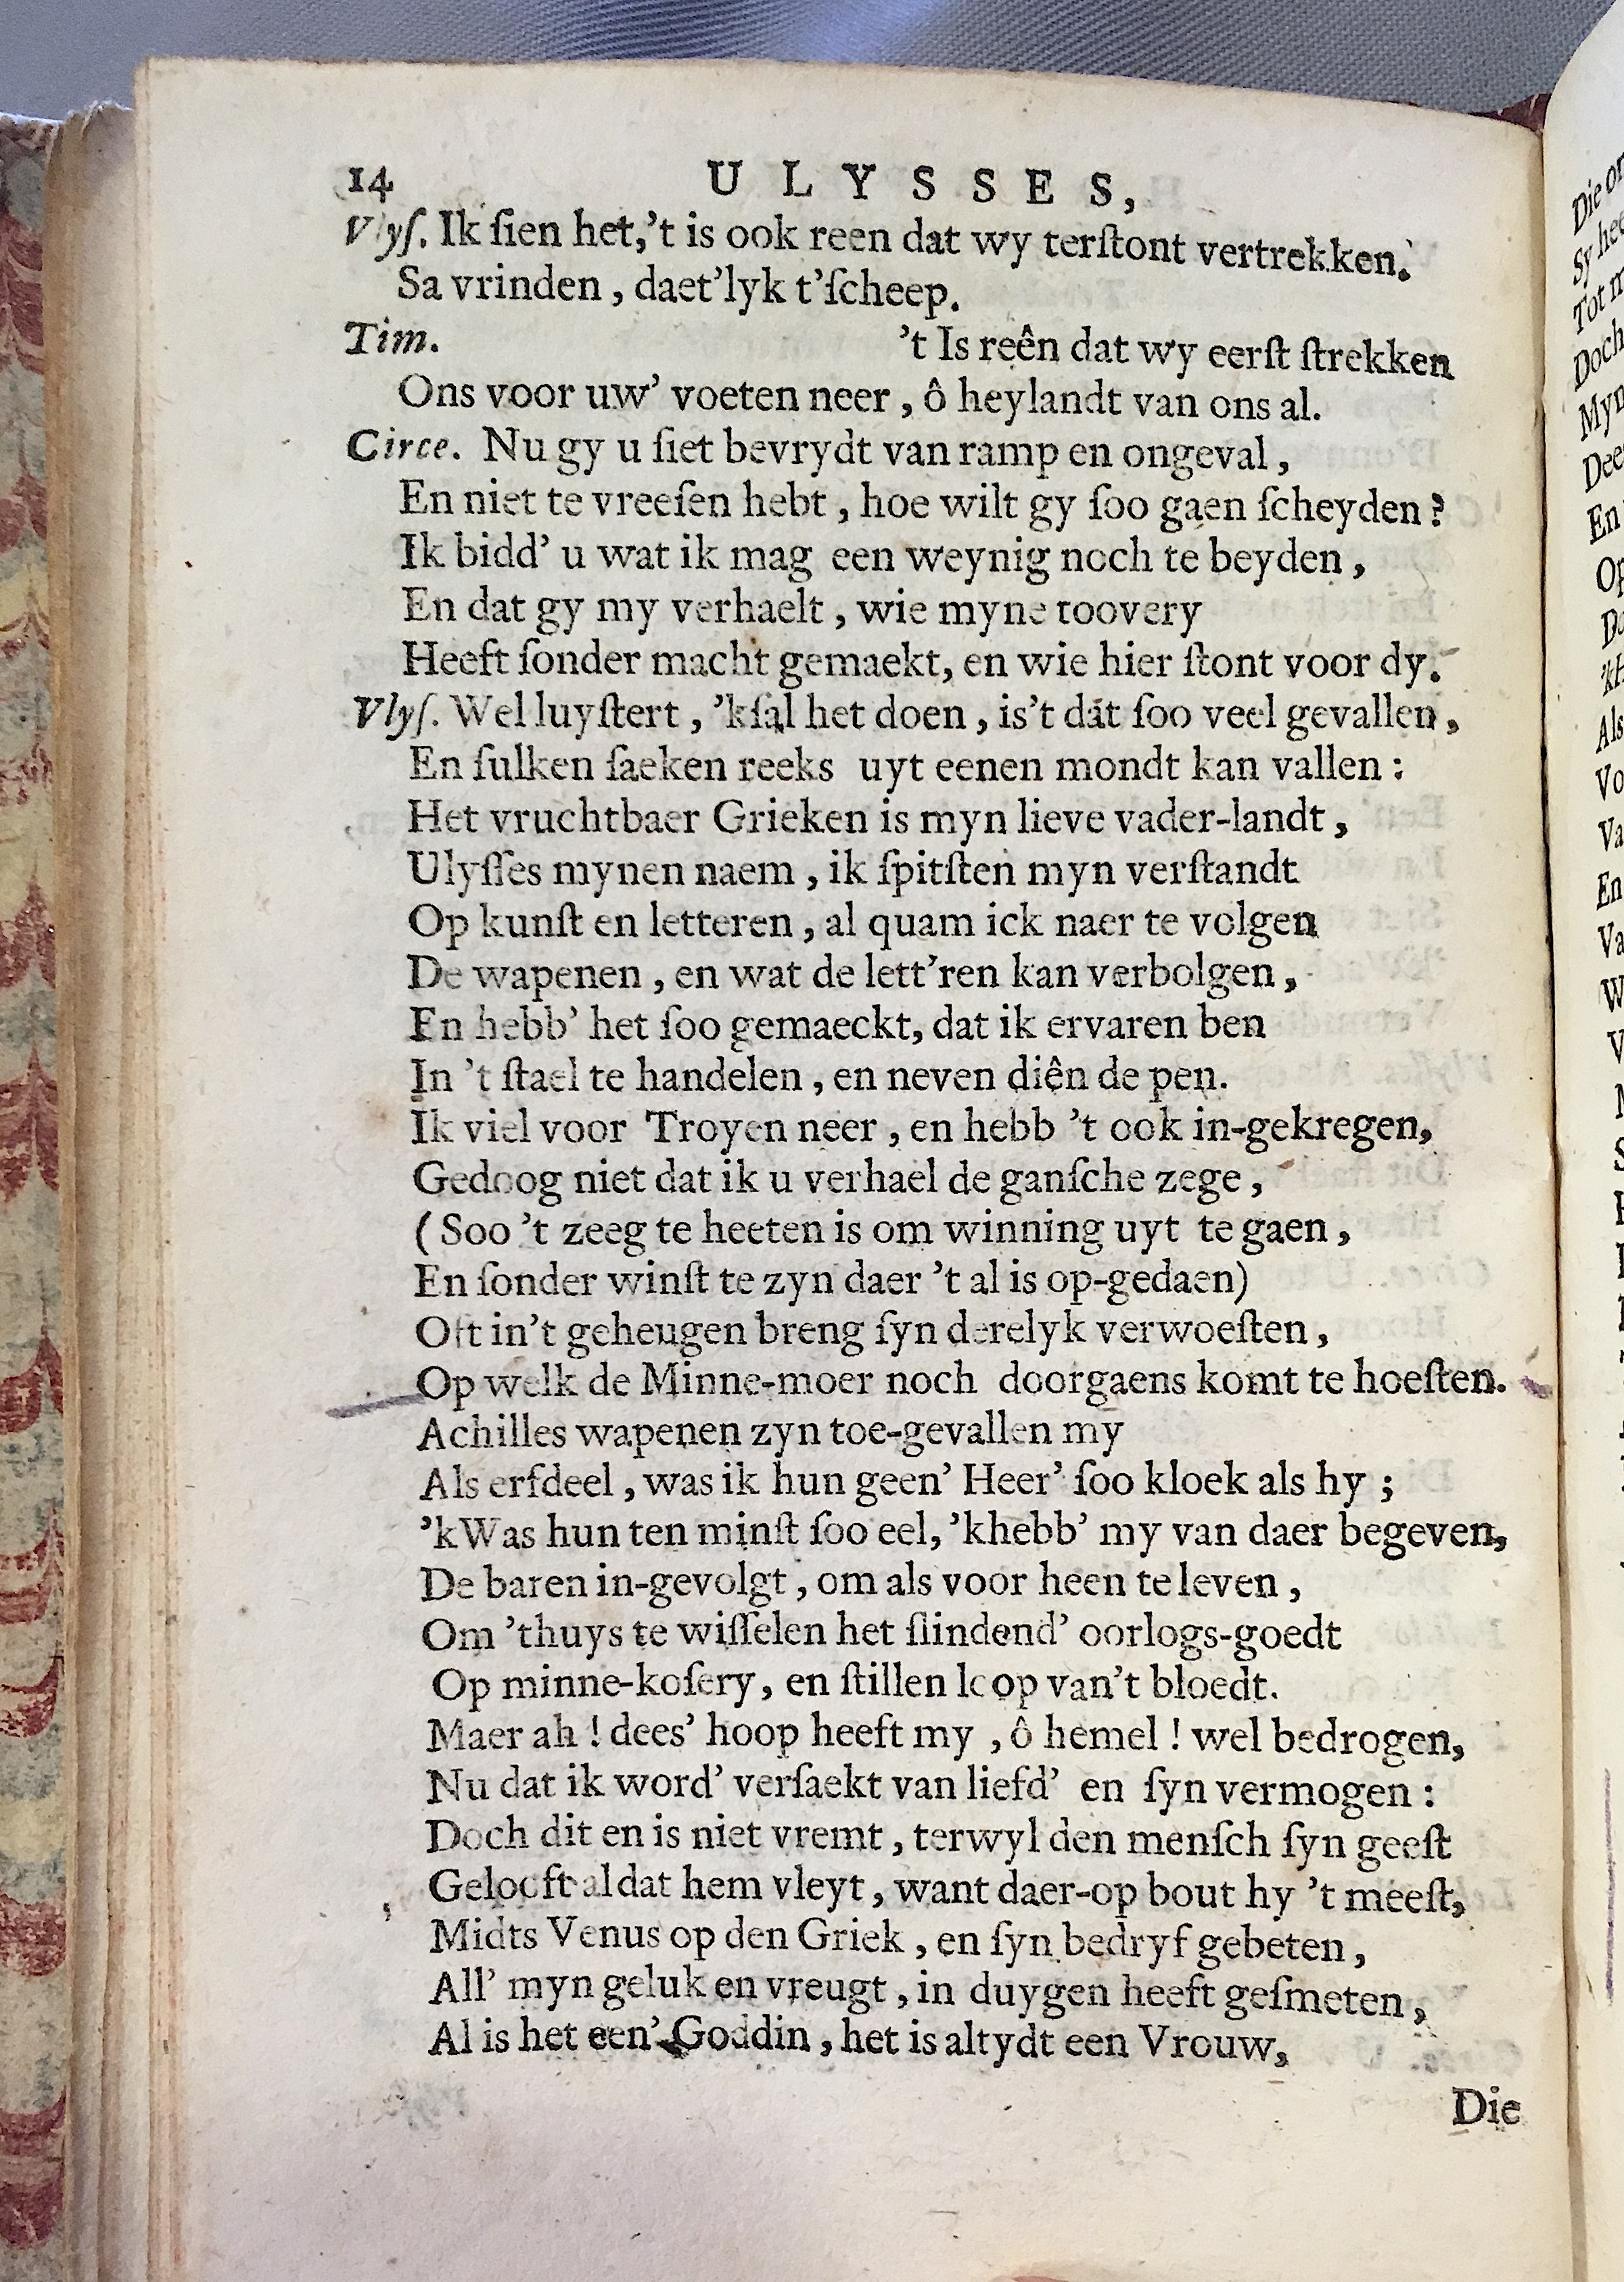 14 ULYSSES,
Vlyſ. Ik ſien het,'t is ook reen dat wy terſtont vertrekken.
Sa vrinden, daet'lyk t'ſcheep.
Tim. 't Is reên dat wy eerſt ſtrekken
Ons voor uw' voeten neer, ô heylandt van ons al.
Circe. Nu gy u ſiet bevrydt van ramp en ongeval,
En niet te vreeſen hebt, hoe wilt gy ſoo gaen ſcheyden?
Ik bidd' u wat ik mag een weynig noch te beyden,
En dat gy my verhaelt, wie myne toovery
Heeft ſonder macht gemaekt, en wie hier ſtont voor dy.
Vlyſ. Wel luyſtert, 'kſal het doen, is't dat ſoo veel gevallen,
En ſulken ſaeken reeks uyt eenen mondt kan vallen:
Het vruchtbaer Grieken is myn lieve vader-landt,
Ulyſſes mynen naem, ik ſpitſten myn verſtandt
Op kunſt en letteren, al quam ick naer te volgen
De wapenen, en wat de lett'ren kan verbolgen,
En hebb' het ſoo gemaeckt, dat ik ervaren ben
In 't ſtael te handelen, en neven diên de pen.
Ik viel voor Troyen neer, en hebb 't ook in-gekregen,
Gedoog niet dat ik u verhael de ganſche zege,
(Soo 't zeeg te heeten is om winning uyt te gaen,
En ſonder winſt te zyn daer 't al is op-gedaen)
Oft in't geheugen breng ſyn derelyk verwoeſten,
Op welk de Minne-moer noch doorgaens komt te hoeſten.
Achilles wapenen zyn toe-gevallen my
Als erfdeel, was ik hun geen' Heer' ſoo kloek als hy;
'kWas hun ten minſt ſoo eel, 'khebb' my van daer begeven,
De baren in-gevolgt, om als voor heen te leven,
Om 'thuys te wiſſelen het ſlindend' oorlogs-goedt
Op minne-koſery, en ſtillen loop van't bloedt.
Maer ah! dees' hoop heeft my, ô hemel! wel bedrogen,
Nu dat ik word' verſaekt van liefd' en ſyn vermogen:
Doch dit en is niet vremt, terwyl den menſch ſyn geeſt
Gelooft al dat hem vleyt, want daer-op bout hy 't meeſt,
Midts Venus op den Griek, en ſyn bedryf gebeten,
All' myn geluk en vreugt, in duygen heeft geſmeten,
Al is het een' Goddin, het is altydt een Vrouw,
Die